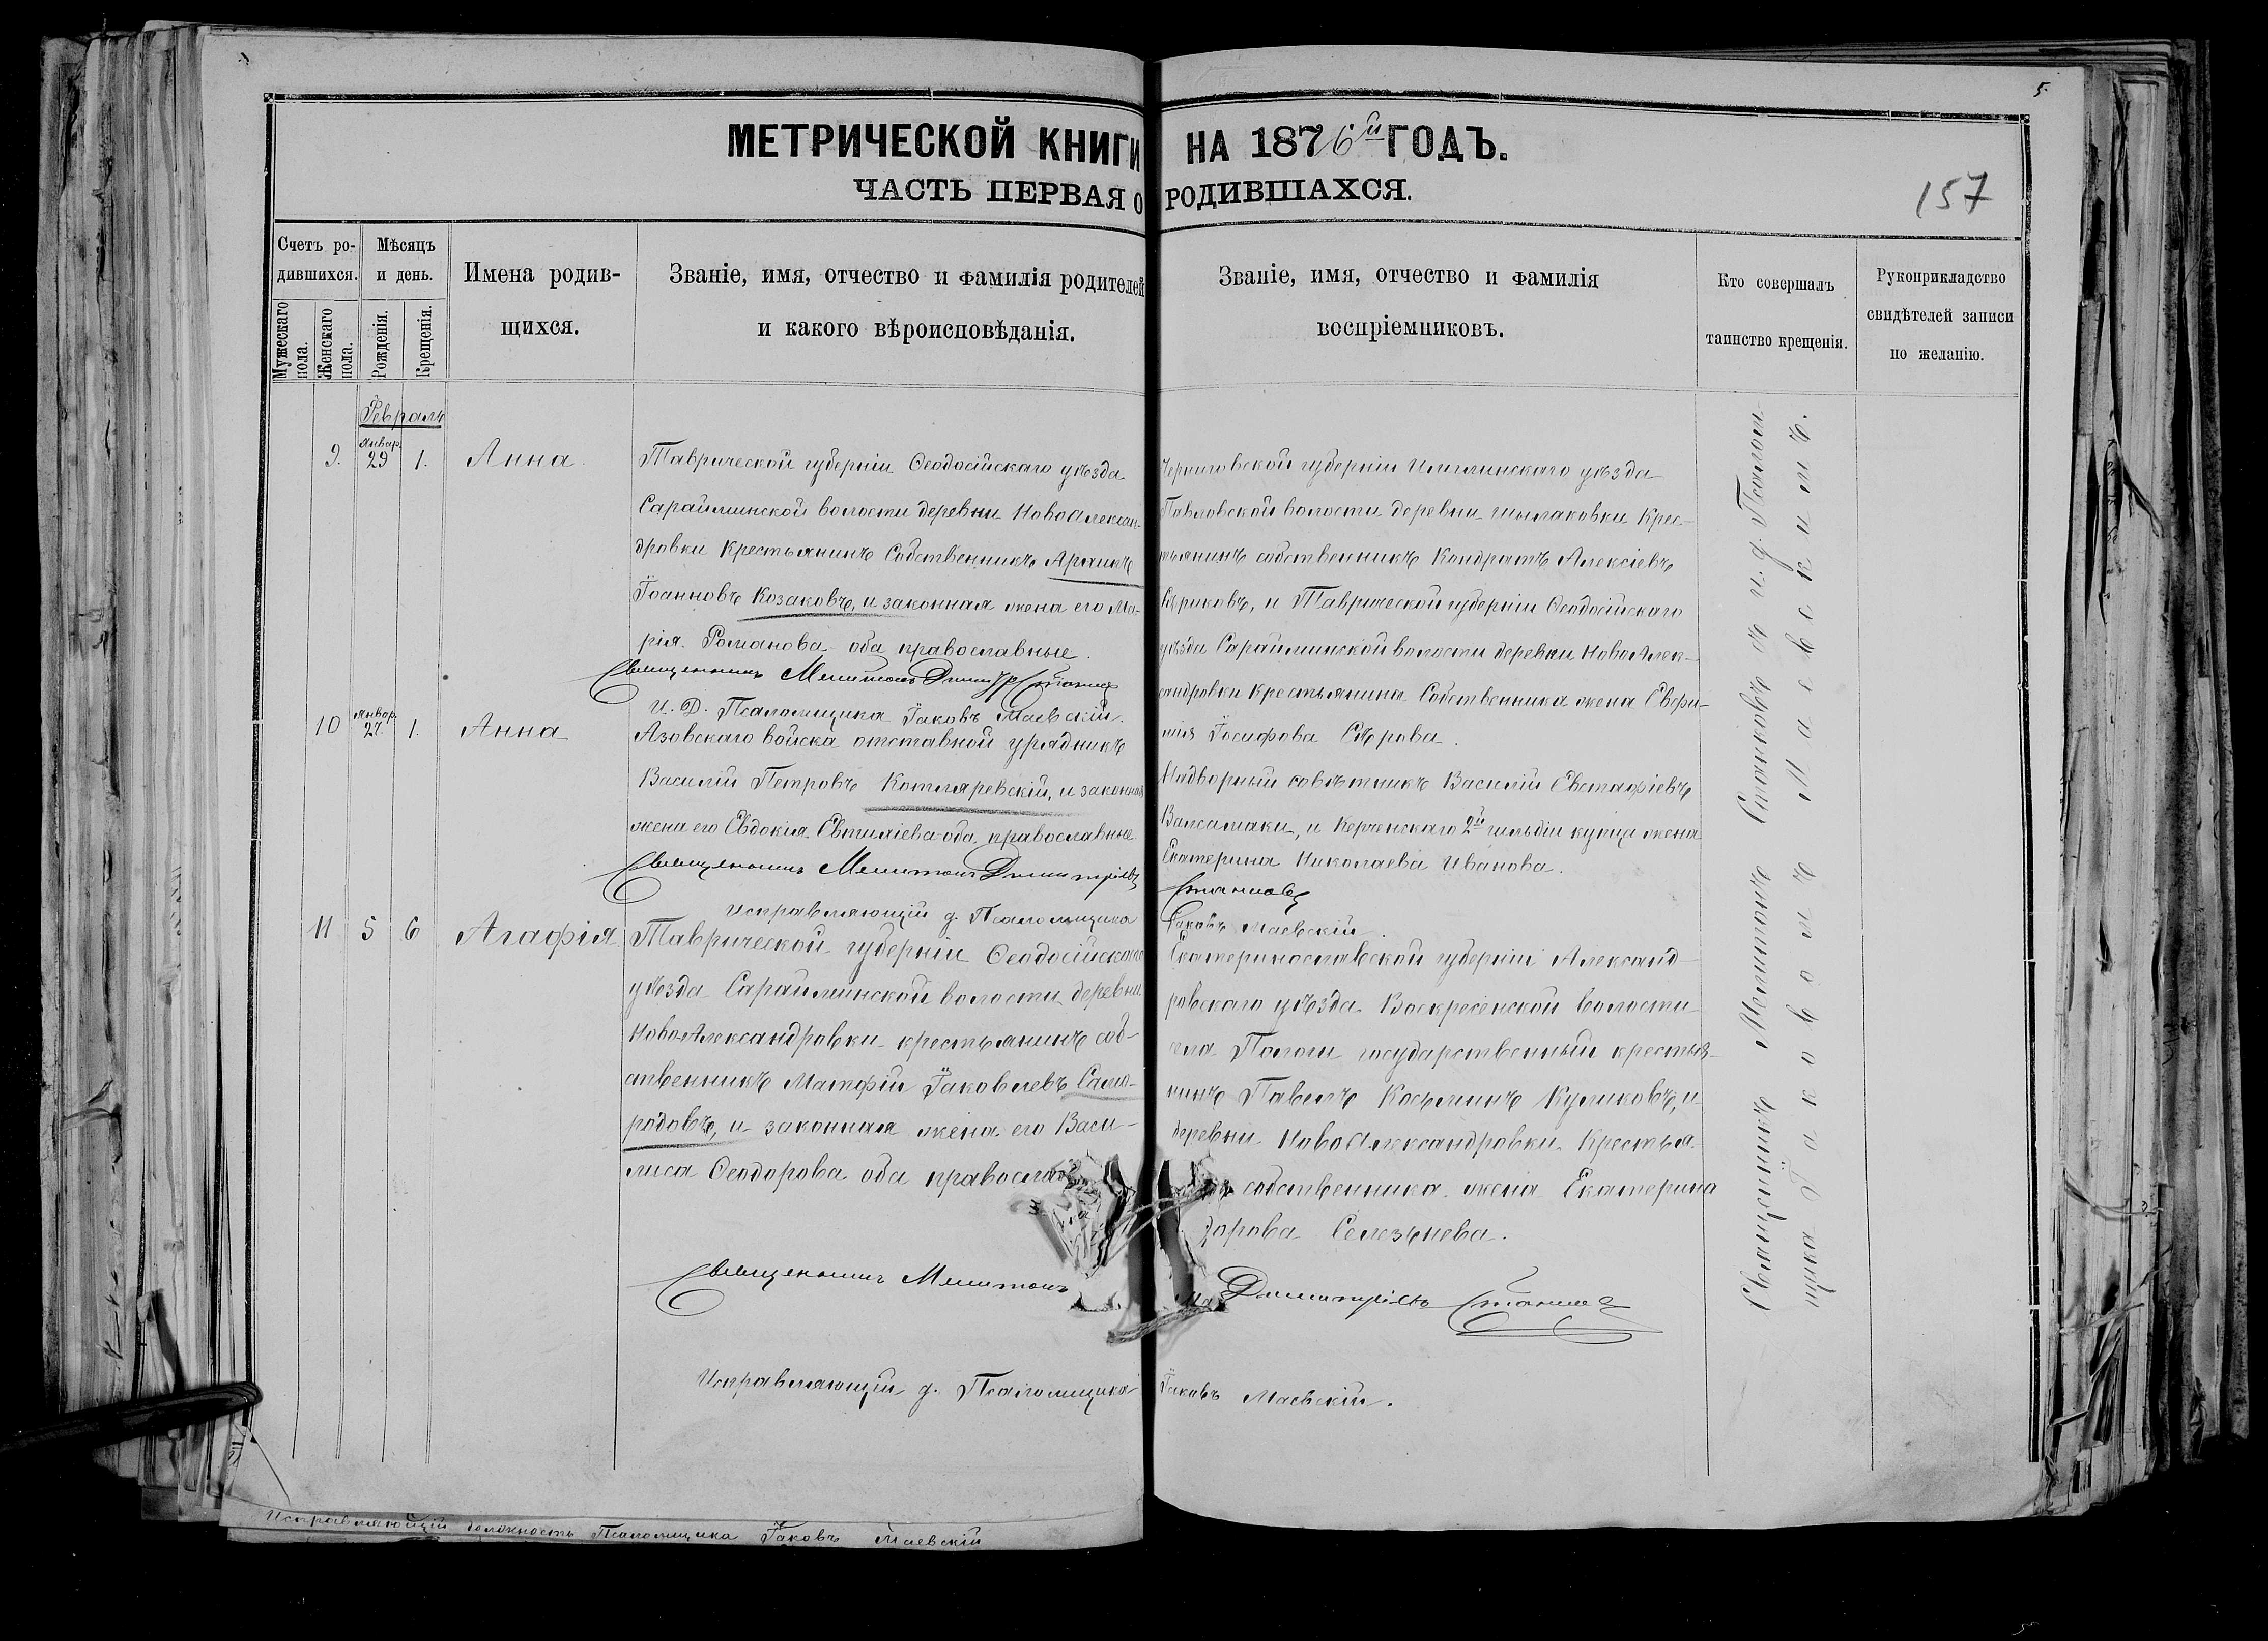 5.
МЕТРИЧЕСКОЙ КНИГИ НА 1876й ГОДЪ.
ЧАСТЬ ПЕРВАЯ О РОДИВШАХСЯ.
157
Счетъ ро-
дившихся.
Мужескаго
пола.
Женскаго
пола.
Мѣсяцъ
и день.
Рожденія.
Крещенія.
Имена родив-
щихся.
Званіе, имя, отчество и фамилія родителей
и какого вѣроисповѣданія.
Званіе, имя, отчество и фамилія
воспріемниковъ.
Кто совершалъ
таинство крещенія.
Рукоприкладство
свидѣтелей записи
по желанію.
Февраль
9. Январ. 29 1. Анна.
Таврической губерніи Ѳеодосійскаго уѣзда
Сарайминской волости деревни НовоАлексан-
дровки Крестьянинъ Собственникъ
Іоанновъ Козаковъ, и законная жена его Ма-
рія Романова оба православные.
Священникъ Мелитонъ Станковъ
И. Д. Псаломщика Іаковъ Маевскій.
Черниговской губерніи уѣзда
Павловской волости деревни Крес-
тьянинъ собственникъ Кондратъ Алексіевъ
и Таврической губерніи Ѳеодосійскаго
уѣзда Сарайминской волости деревни НовоАлек-
сандровки крестьянина Собственника жена Евфи-
мія Іосифова Сѣрова.
10 Январ. 27. 1. Анна
Азовскаго войска отставной урядникъ
Василій Петровъ Котляревскій, и законная
жена его Евдокія Евтихіева оба православные
Священникъ Мелитонъ Димитріевъ
Исправляющій д. Псаломщика
Надворный совѣтникъ Василій Евстафіевъ
Валсамаки, и Керченскаго 2й гильдіи купца жена
Екатерина Николаева Иванова.
Станковъ
Іаковъ Маевскій.
11 5 6 Агафія
Таврической губерніи Ѳеодосійскаго
уѣзда Сарайминской волости деревни
НовоАлександровки крестьянинъ соб-
ственникъ Матфій Іаковлевъ Само-
родовъ, и законная жена его Васи-
лиса Ѳеодорова оба православ
Священникъ Мелитонъ
Исправляющій д. Псаломщика
Екатеринославской губерніи Александ-
ровскаго уѣзда Воскресенской волости
села Пологи государственный крестья-
нинъ Павелъ Косьминъ Куликовъ, и
деревни НовоАлександровки Крестья-
собственника жена Екатерина
дорова Селезьнева.
Димитріевъ Станковъ
Іаковъ Маевскій.
Священникъ Мелитонъ Станковъ съ и. д. Псалом-
щика Іаковомъ Маевскимъ.
Исправляющій должность Псаломщика Іаковъ Маевскій